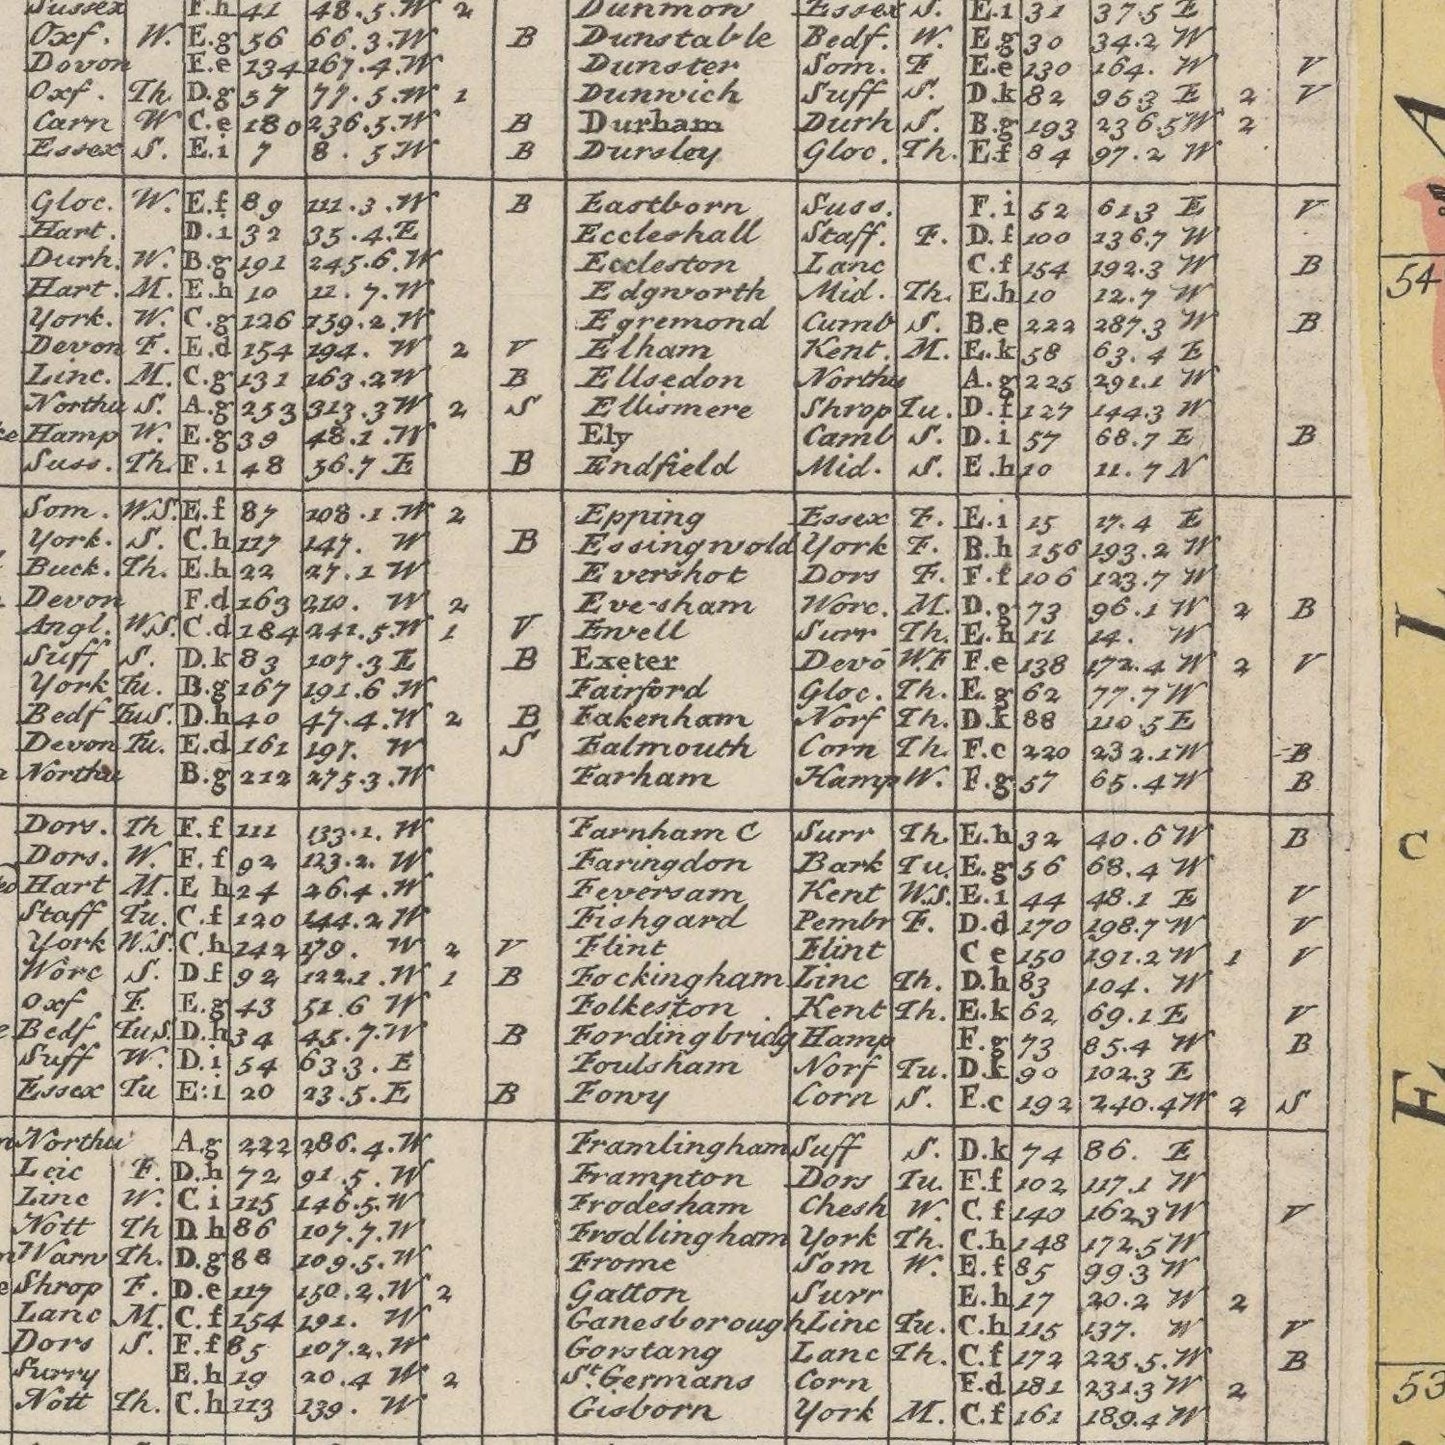 Sussex F.h 41 48.5.W 2 Dunmon Essex S. E.i 31 37.5 E
Oxf. W. E.g 56 66.3.W B Dunstable Bedf. W. E.g 30 34.2 W
Dovon E.e 134 167.4.W Dunster Som. F E.e 130 164. W V
Oxf. Th D.g 57 77.5.W 1 Dunwich Suff S. D.k 82 953 E 2 V
Carn W C.e 180 236.5.W B Durham Durh S. B.g 193 236 5W 2
Essex S. E.i 7 8.5W B Dursley Gloc. Th. E.f 84 97.2 W
Gloc. W. E.f 89 111.3.W B Eastborn Suss. F.i 52 613 E V
Hart. D.i 32 35.4.E Eccleshall Staff. F. D.f 100 136.7 W
Durh. W. B.g 191 245.6.W Eccleston Lanc C.f 154 192.3 W B
Hart. M. E.h 10 11.7.W Edgworth Mid. Th. E.h 10 12.7 W
York. W. C.g 126 159.2.W Egremond Cumb S. B.e 222 287.3 W B
Devon F. E.d 154 194. W 2 V Elham Kent. M. E.k 58 63.4 E
Linc. M. C.g 131 163.2W B Ellsedon Northu A.g 225 291.1 W
Northu S. A.g 253 313.3W 2 S Ellismere Shrop Tu. D.f 127 144.3 W
Hamp W. E.g 39 48.1.W Ely Camb S. D.i 57 68.7 E B
Suss. Th. F.i 48 56.7 E B Endfield Mid. S. E.h 10 11.7 N
Som. W.S. E.f 87 108.1.W 2 Epping Essex F. E.i 15 17.4 E
York. S. C.h 117 147. W B Essingwold York F. B.h 156 193.2 W
Buck. Th. E.h 22 27.1 W Evershot Dors F. F.f 106 123.7 W
Devon F.d 163 210. W 2 Evesham Worc. M. D.g 73 96.1 W 2 B
Angl. W.S. C.d 184 241.5.W 1 V Ewell Surr Th. E.h 11 14. W
Suff S. D.k 83 107.3 E B Exeter Devo W.F F.e 138 172.4 W 2 V
York Tu. B.g 167 191.6 W Fairford Gloc. Th. E.g 62 77.7 W
Bedf TuS. D.h 40 47.4.W 2 B Fakenham Norf Th. D.k 88 110 5 E
Devon Tu. E.d 161 197. W S Falmouth Corn Th. F.c 220 232.1W B
Northu B.g 212 275 3.W Farham Hamp W. F.g 57 65.4 W B
Dors. Th F.f 111 133.1. W Farnham C Surr Th. E.h 32 40.6 W B
Dors. W. F.f 92 123.2. W Faringdon Bark Tu. E.g 56 68.4 W
Hart M. E h 24 26.4.W Feversam Kent W.S. E.i 44 48.1 E V
Staff Tu. C.f 120 144.2 W Fishgard Pembr F. D.d 170 198.7 W V
York W.S. C.h 142 179. W 2 V Flint Flint C e 150 191.2 W 1 V
Worc S. D.f 92 122.1.W 1 B Fockingham Linc Th. D.h 83 104. W
Oxf F. E.g 43 51.6 W Folkeston Kent Th. E.k 62 69.1 E V
Bedf TuS. D.h 34 45.7.W B Fordingbridg Hamp F.g 73 85.4 W B
Suff W. D.i 54 633. E Foulsham Norf Tu. D.k 90 1023 E
Essex Tu E:i 20 23.5.E B Fowy Corn S. F.c 192 240.4W 2 S
Northu A.g 222 286.4.W Framlingham Suff S. D.k 74 86. E
Leic F. D.h 72 91.5.W Frampton Dors Tu. F.f 102 117.1 W
Linc W. C.i 115 146.5.W Frodesham Chesh W. C.f 140 1623 W V
Nott Th D.h 86 107.7.W Frodlingham York Th. C.h 148 172.5 W
Warw Th. D.g 88 109.5.W Frome Som W. E.f 85 993 W
Shrop F. D.e 117 150.2.W 2 Gatton Surr E.h 17 20.2 W 2
Lanc M. C.f 154 191. W Ganesborough Linc Tu. C.h 115 137. W V
Dors S. F.f 85 107.2.W Gorstang Lanc Th. C.f 172 225.5.W B
Surry E.h 19 20.4 W 2 St. Germans Corn F.d 181 2313 W 2
Nott Th. C.h 113 139. W Gisborn York M. C.f 161 189.4 W
54
C
53